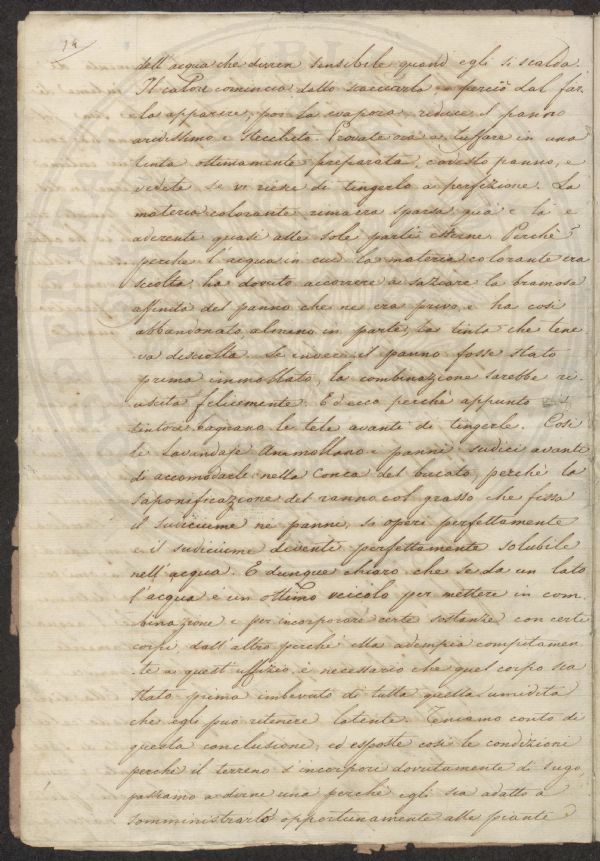 14
dell'acqua che divien sensibile quand'egli si scalda.
Il calore comincia dallo staccarla e perciò dal far-
la apparire, poi la svapora, riduce il panno
aridissimo e stecchito. Provate ora a tuffare in una
tinta ottimamente preparata, codesto panno, e
vedete se vi riesce di tingerlo a perfezione. La
materia colorante rimarrà sparsa quà e là e
aderente quasi alle sole parti esterne. Perchè?
perchè l'acqua in cui la materia colorante era
sciolta ha dovuto accorrere a saziare la bramosa
affinità del panno che ne era privo, e ha così
abbandonato, almeno in parte, la tinta che tene
va disciolta. Se invece il panno fosse stato
prima immollato, la combinazione sarebbe ri-
uscita felicemente. Ed ecco perchè appunto i
tintori bagnano le tele avanti di tingerle. Così
le lavandaje ammollano i panni sudici avanti
di accomodarli nella Conca del bucato, perchè la
saponificazione del ranno col grasso che fissa
il sudiciume ne' panni, si operi perfettamente
e il sudiciume diventi perfettamente solubile
nell'acqua. E dunque chiaro che se da un lato
l'acqua è un ottimo veicolo per mettere in com
binazione e per incorporare certe sostanze con certi
corpi, dall'altro perchè ella adempia compitamen-
te a quest'uffizio, è necessario che quel corpo sia
stato prima imbevuto di tutta quella umidità
che egli può ritenere latente. Teniamo conto di
questa conclusione, ed esposte così le condizioni
perchè il terreno s'incorpori dovutamente di sugo,
passiamo a dirne una perchè egli sia adatto a
somministrarlo opportunamente alle piante